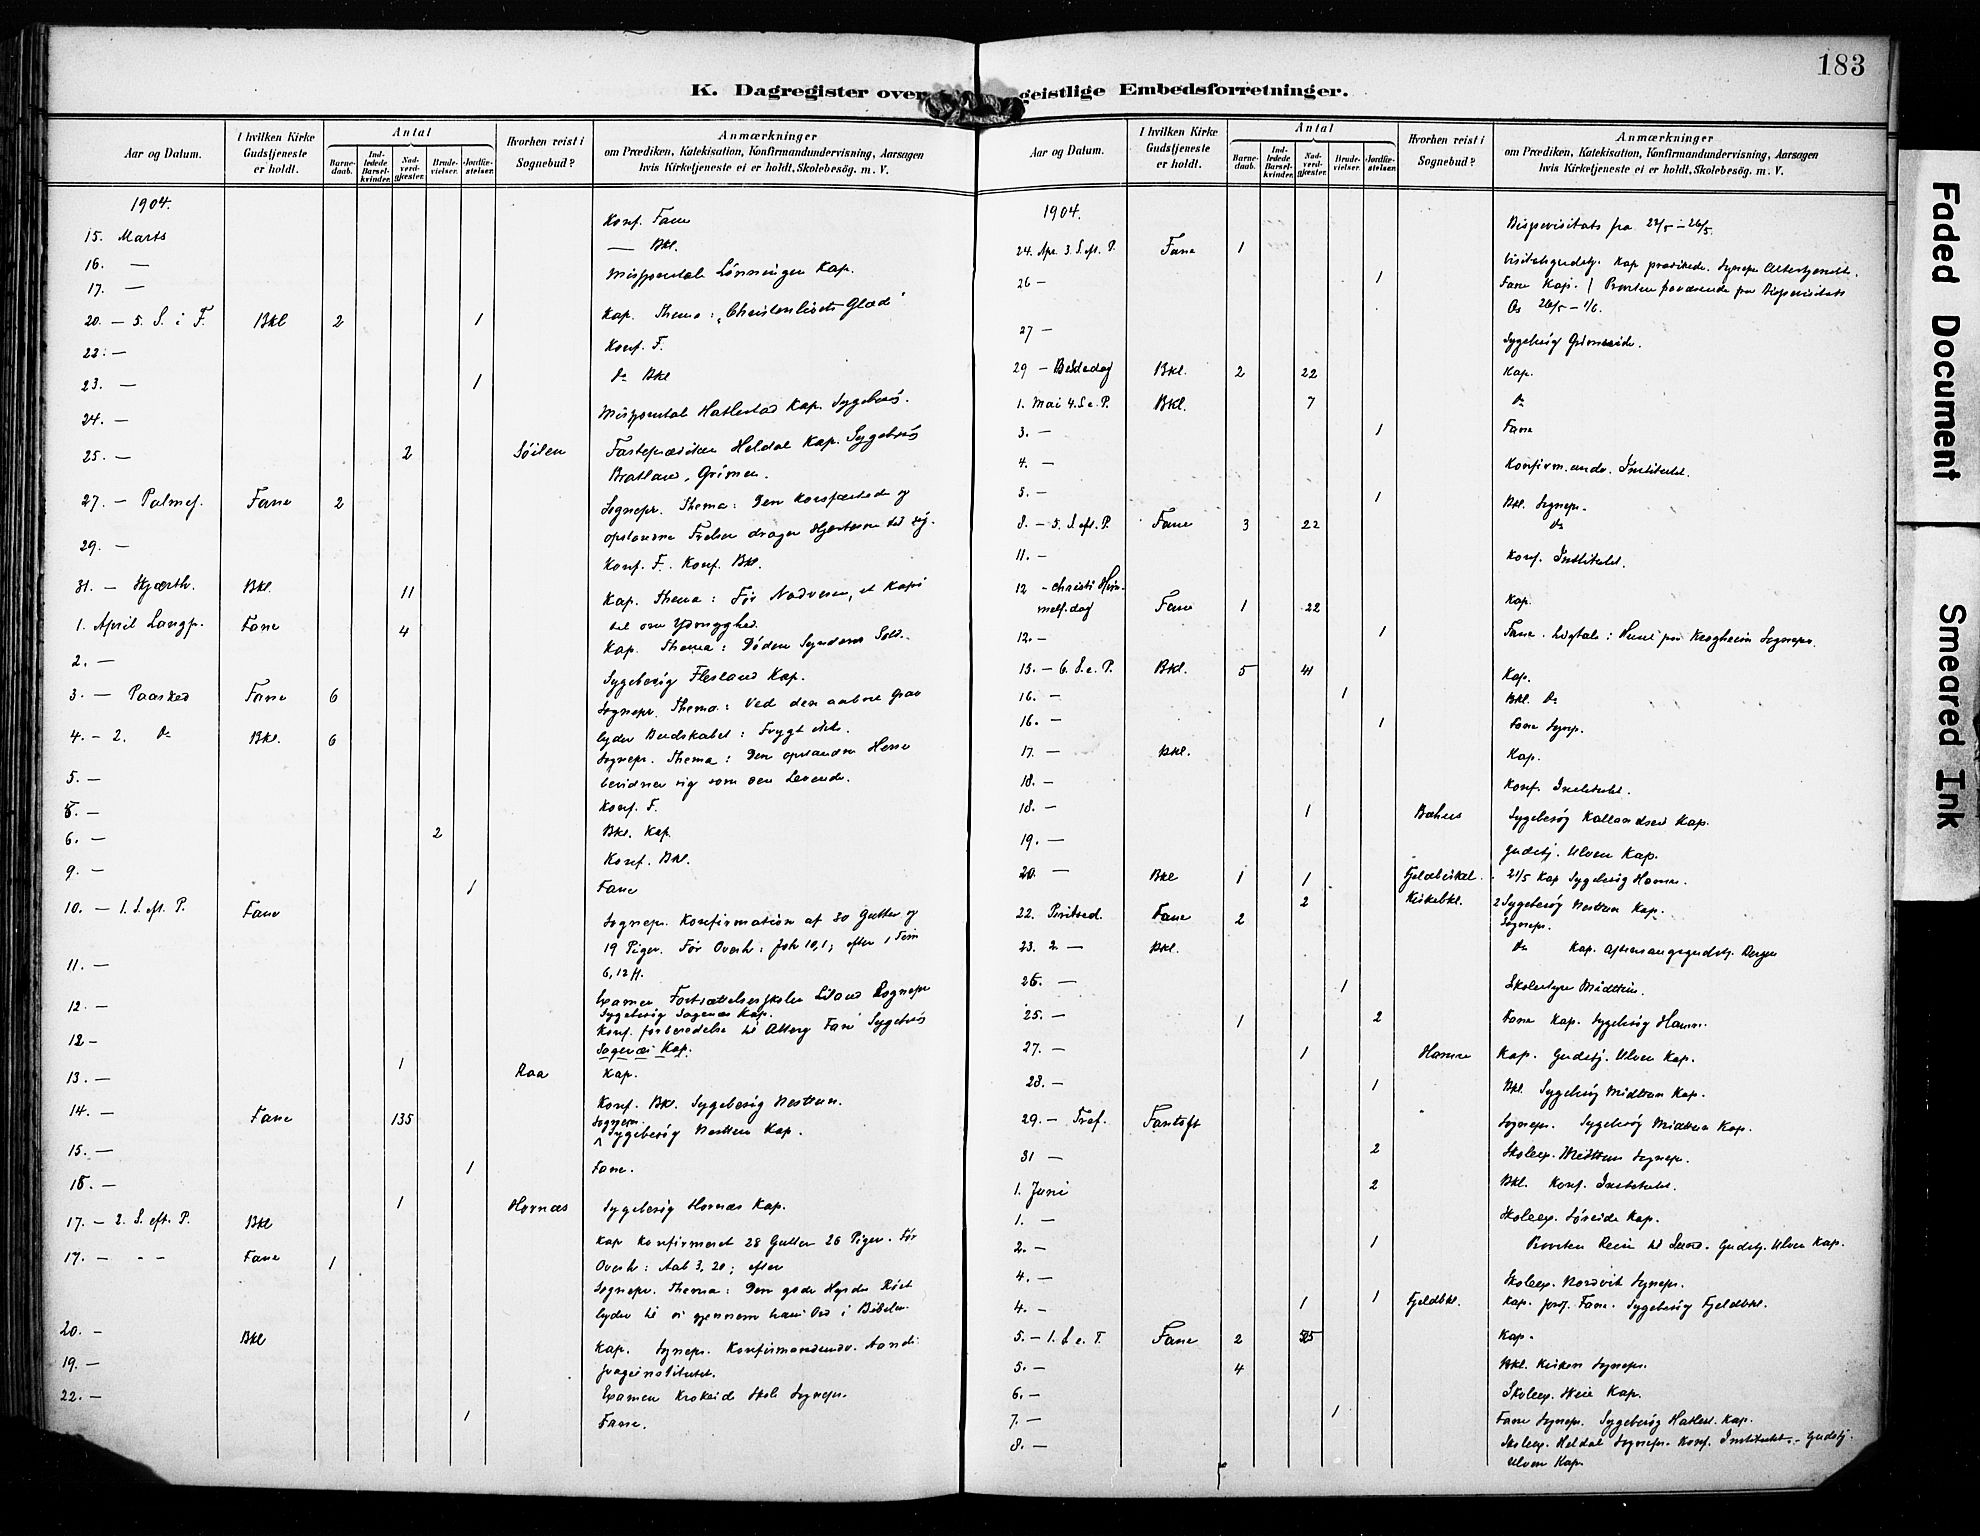 183
K. Dagregister over geistlige Embedsforretninger.
Aar og Datum.
I hvilken Kirke Gudstjeneste er holdt.
Antal
Barnedaab.
Indledede Barselkvinder.
Nadverdgjæster.
Brudevielser.
Jordfæstelser.
Hvorhen reist i Sognebud?
Anmærkninger
om Prædiken, Katekisation, Konfirmandundervisning, Aarsagen
hvis Kirketjeneste ei er holdt, Skolebesøg. m. V.
1904.
Konf. Fane
15. Marts
— Bkl.
16. —
Kap.
17. —
20. — 5. S. i F. Bkl 2 1 Kap. Thema: „Christenlivets Glæde"
22. — Konf. F.
23. — 1 do Bkl
24. — Hatlestad Kap. Sygebesøg.
25. — 2 Søilen Fasteprædiken Heldal Kap. Sygebesøg
Bratland, Grimen.
27. — Palmes. Fane 2 Sognepr. Thema: Den korsfæstede og
opstandne Frelser drager Hjerterne til sig.
29. —
Konf. F. Konf. Bkl.
31. — Skjærth. Bkl. 11 Kap. Thema: Før Nadveren, et Kapi
tel om Ydmyghed.
1. April Langfr. Fane 4 Kap. Thema: Døden Syndens Sold.
2. — Sygebesøg Flesland Kap.
3. — Paasked Fane 6 Sognepr. Thema: Ved den aabne Grav
lyder Budskabet: Frygt ikke.
4. — 2. do Bkl. 6 Sognepr. Thema: Den opstandne Herre
bevidner sig som den Levende.
5. — Konf. F.
5. — 2 Bkl. Kap.
6. — Konf. Bkl.
9. — 1 Fane
10. — 1. S. eft. P. Fane Sognepr. Konfirmation af 30 Gutter og
19 Piger. Før Overh: Joh 10,1; efter 1 Tim
6,12 ff.
11. — Examen Fortsættelsesskolen Liland Sognepr
12. — Sygebesøg Kap.
Konf. forberedelse til Alterg Fane Sygebesøg
12 — Kap.
1 Raa Kap.
13. — Konf. Bkl. Sygebesøg Nesttun.
14. — Fane 135 Sognepr.
Sygebesøg Nesttun Kap.
15. — 1 Fane.
16. — 1 Hornæs Sygebesøg Hornæs Kap.
17. — 2. S. eft. P. Bkl Kap konfirmeret 28 Gutter 26 Piger. Før
Overh: Aab 3, 20; efter
17. — - - Fane 1 Sognepr. Thema: Den gode Hyrdes Røst
lyder til os gjennem hans Ord i Bibelen
20. — Bkl Kap. Sognepr. Konfirmandundv. Aands
19. — svageinstitutet.
22. — Examen Krokeide Skole Sognepr.
1 Fane.
Aar og Datum.
I hvilken Kirke Gudstjeneste er holdt.
Antal
Barnedaab.
Indledede Barselkvinder.
Nadverdgjæster.
Brudevielser.
Jordfæstelser.
Hvorhen reist i Sognebud?
Anmærkninger
om Prædiken, Katekisation, Konfirmandundervisning, Aarsagen
hvis Kirketjeneste ei er holdt, Skolebesøg. m. V.
1904.
Bispevisitats fra
24. Apr. 3. S. eft. P. Fane 1 Visitatsgudstj. Kap prædikede. Sognepr Altertjeneste.
26 — 1 Fane Kap. Provsten fraværende paa Bispevisitats
Os 26/5 — 1/6.
27 — Sygebesøg Grimseide.
29 — Bededag Bkl. 2 22 Kap.
1. Mai 4. S. e. P. Bkl. 7 do
3. — 1 Fane
4. — Konfirm.undv. Institutet.
5. — 1 Bkl. Sognepr.
8. — 5. S. eft. P. Fane 3 22 do
11. — Konf. Institutet.
12 — Christi Him-
melf.dag Fane 1 22 Kap.
12. — 1 Fane. Ligtale: Sognepr.
15. — 6. S. e. P. Bkl. 5 41 Kap.
16. — 1 Bkl. do
16. — 1 Fane Sognp.
17. — Bkl. Kap.
18. — Konf. Institutet.
18. — 1 Bahus Sygebesøg Kallandseid Kap.
19. — Gudstj. Ulven Kap.
20. — Bkl 1 1 Fjeldbirkel. 21/5 Kap Sygebesøg Hamre.
2 Kirkebkl. Sygebesøg Nesttun Kap.
22. Pintsed. Fane 2 Sognepr.
23. 2. — Bkl. do Kap. Aftensangsgudstj. Bergen
25. — 1 Skolestyre Midttun.
25. — 1 2 Fane Kap. Sygebesøg Hamre.
27. — 1 Hamre Kap. Gudstj. Ulven Kap.
28. — 1 Bkl. Sygebesøg Midttun Kap.
29. — Tref. Fantoft Sognepr. Sygebesøg Midttun Kap.
31 — 2 Skoleex. Midttun Sognepr.
1. Juni 2 Bkl. Konf. Institutet.
1. — Skoleex. Søreide Kap.
2. — 1 Provsten Reise til Sund. Gudstj. Ulven Kap.
4. — Skoleex. Nordvik Sognepr.
4. — 1 1 Fjeldbkl. Kap. jord. Fane. Sygebesøg Fjeldbkl.
5. — 1. S. e. T. Fane 2 Kap.
5. — 4 Bkl. Kirken Sognepr.
6. — Skoleex. Kap.
7. — 1 Fane Sognepr. Sygebesøg Hatlest. Kap.
8. — Skoleex. Heldal Sognepr. Konf. Institutet. — Gudstj.
Ulven Kap.
Faded Document
Smeared Ink